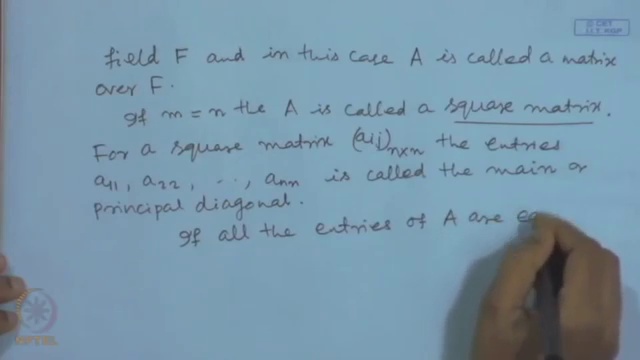 © CET
I.I.T. KGP
field F and in this case A is called a matrix
over F.
If m = n the A is called a square matrix.
For a square matrix (aij)n×n the entries
a11, a22, ..., ann is called the main or
principal diagonal.
If all the entries of A are eq
NPTEL